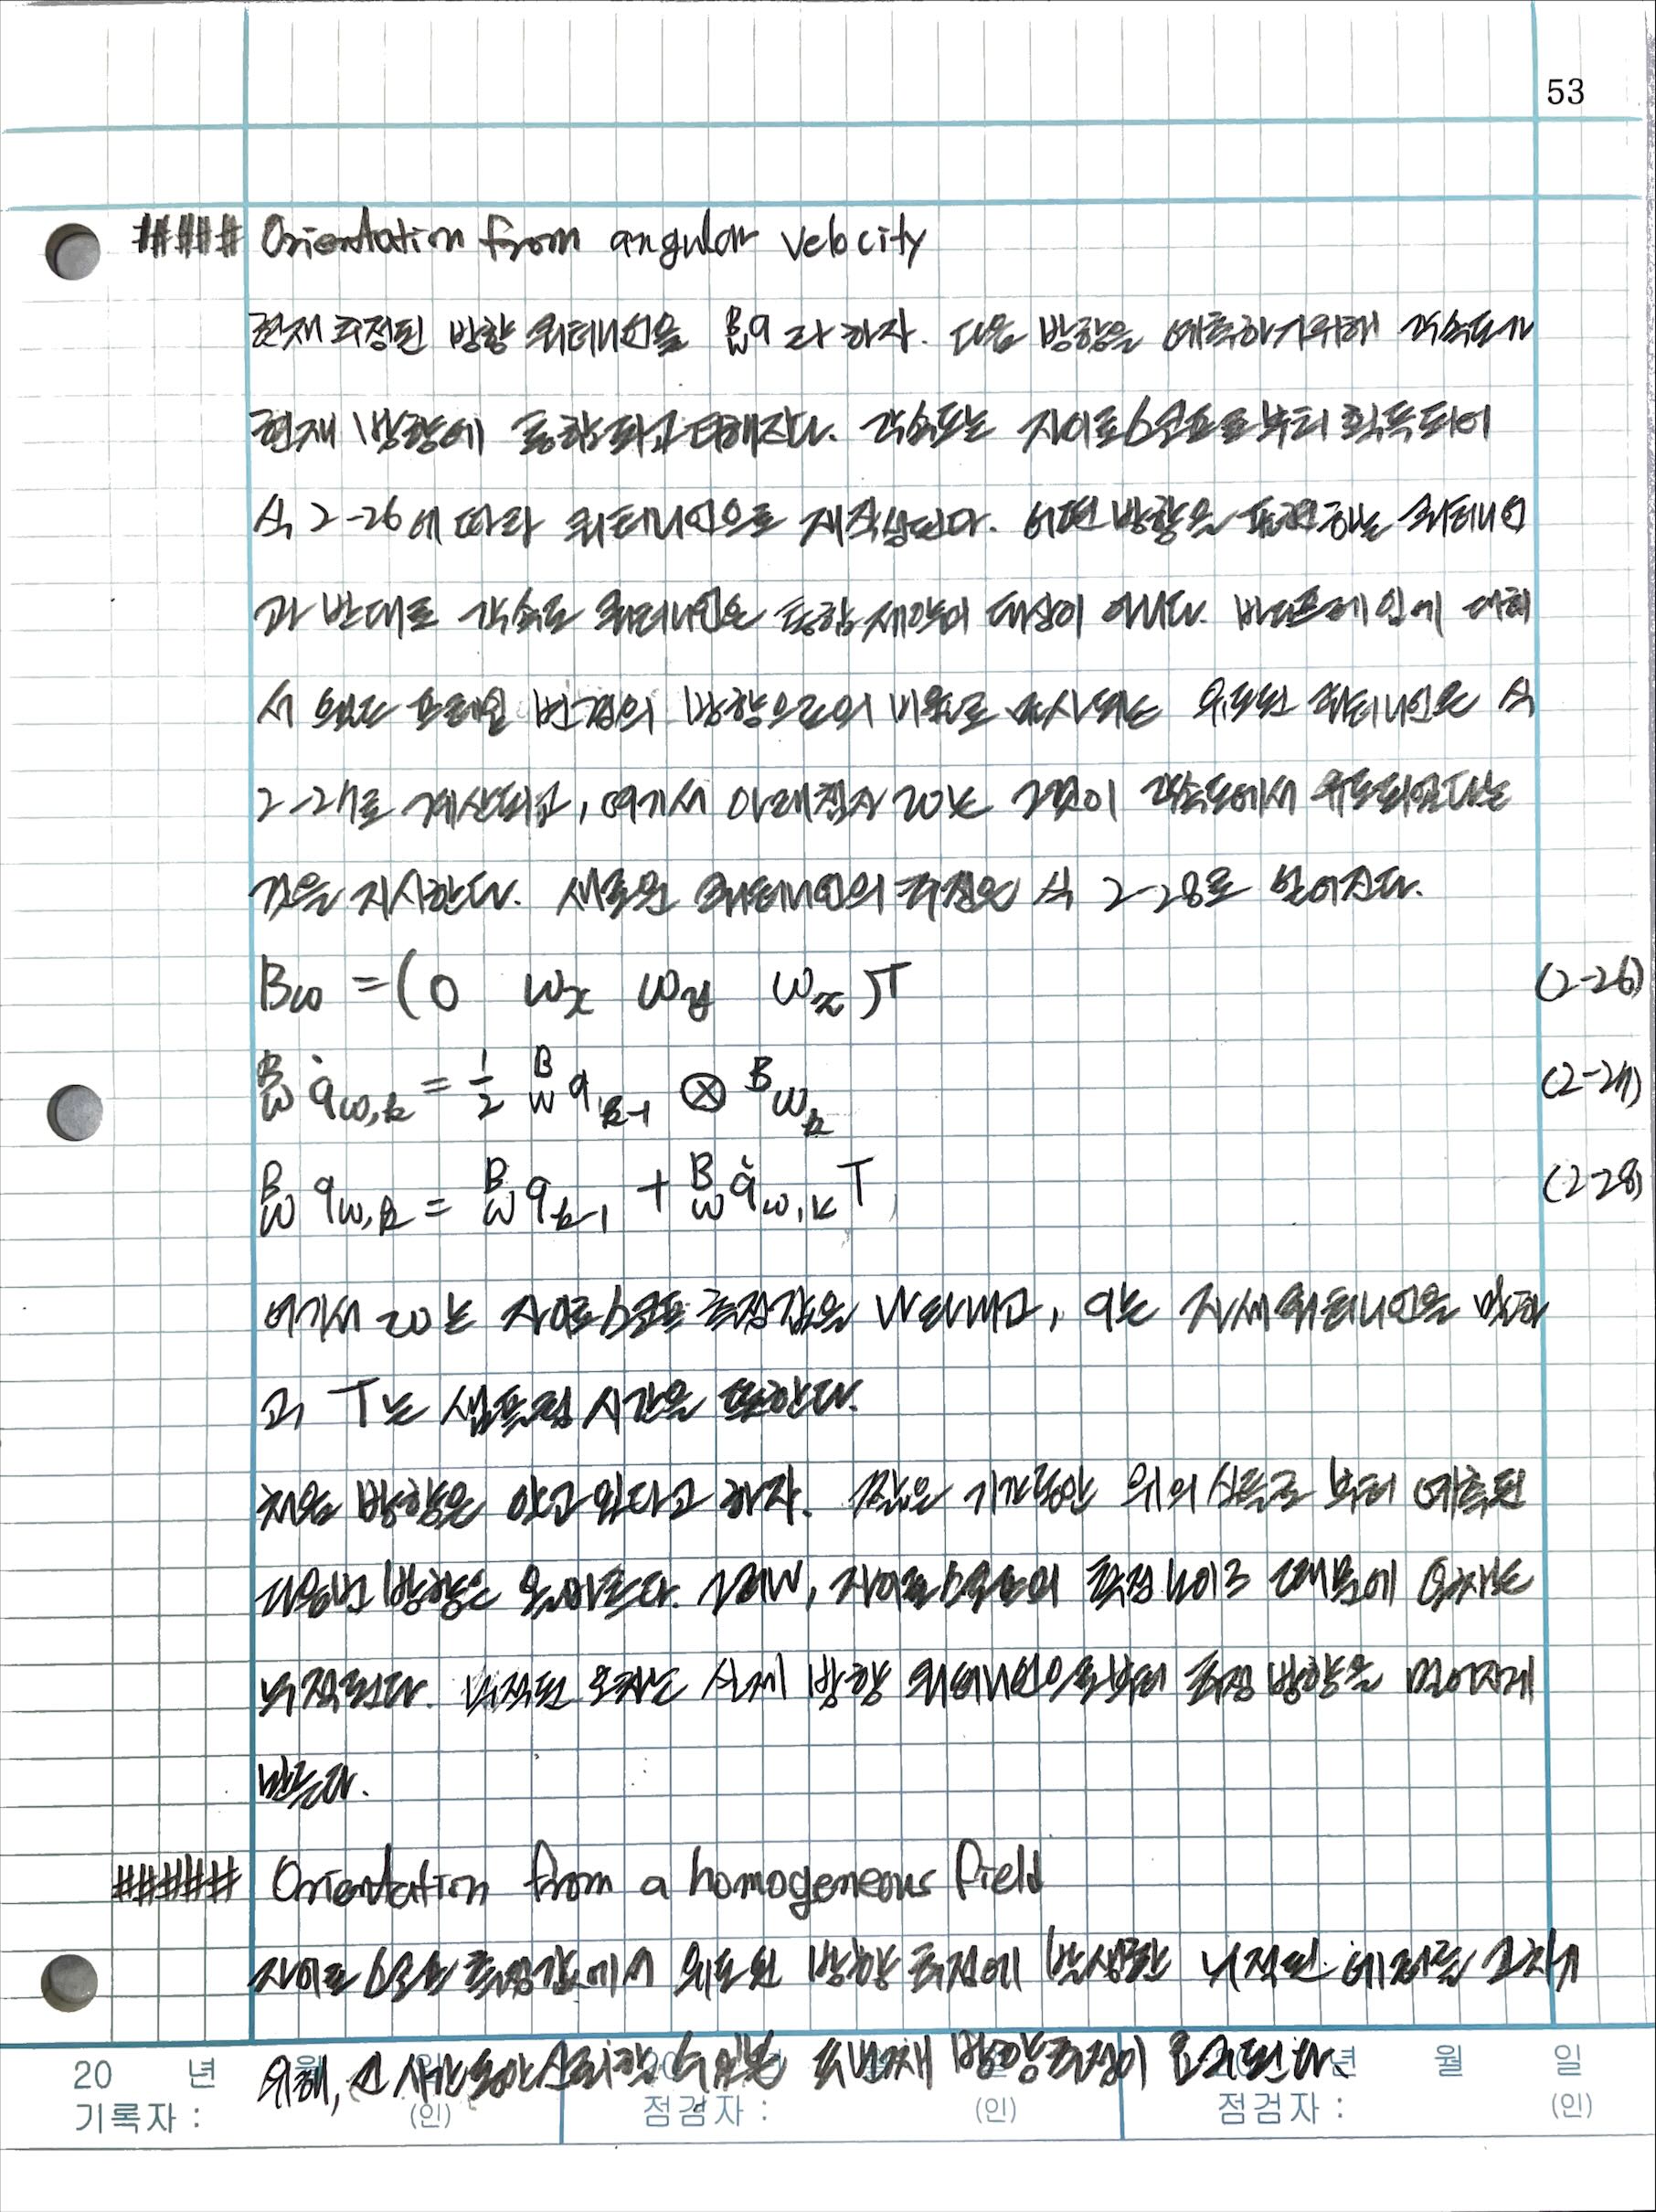 53
##### Orientation from angular velocity
현재 추정된 방향 쿼터니언을 ᴮ_W q 라 하자. 다음 방향을 예측하기위해 각속도가
현재 방향에 통합되고 더해진다. 각속도는 자이로스코프로부터 획득되어
식 2-26에 따라 쿼터니언으로 재작성된다. 어떤 방향을 표현하는 쿼터니언
과 반대로 각속도 쿼터니언은 통합 제약의 대상이 아니다. 바디프레임에 대해
서 월드 프레임 변경의 방향으로의 비율로 묘사되는 유도된 쿼터니언은 식
2-27로 계산되고, 여기서 아래첨자 w는 그것이 각속도에서 유도되었다는
것을 지시한다. 새로운 쿼터니언의 추정은 식 2-28로 얻어진다.
Bω = (0 ωx ωy ωz)T (2-26)
ᴮ_W q̇ω,k = 1/2 ᴮ_W qk-1 ⊗ ᴮωk (2-27)
ᴮ_W qω,k = ᴮ_W qk-1 + ᴮ_W q̇ω,k T (2-28)
여기서 w는 자이로스코프 측정값을 나타내고, q는 자세쿼터니언을 말하
고, T는 샘플링 시간을 뜻한다.
처음 방향은 알고 있다고 하자. 짧은 기간동안 위의 식들로 부터 예측된
다음번 방향은 올바르다. 그러나, 자이로스코프의 측정 노이즈 때문에 오차는
누적된다. 누적된 오차는 실제 방향 쿼터니언으로부터 추정 방향을 멀어지게
만든다.
##### Orientation from a homogeneous field
자이로스코프 측정값에서 유도된 방향 추정에 발생한 누적된 에러를 고치기
위해, 긴 시간동안 두번째 방향추정이 요구된다.
20 년 월 일 년 월 일
기록자 : (인) 점검자 : (인) 점검자 : (인)